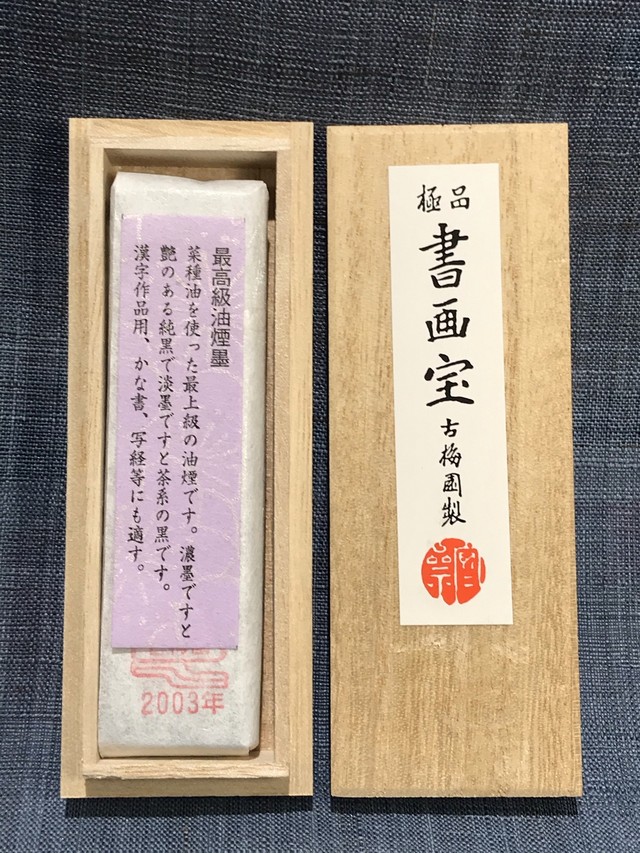 極品
書画宝
古梅園製
最高級油煙墨
菜種油を使った最上級の油煙です。濃墨ですと
艶のある純黒で淡墨ですと茶系の黒です。
漢字作品用、かな書、写経等にも適す。
2003年